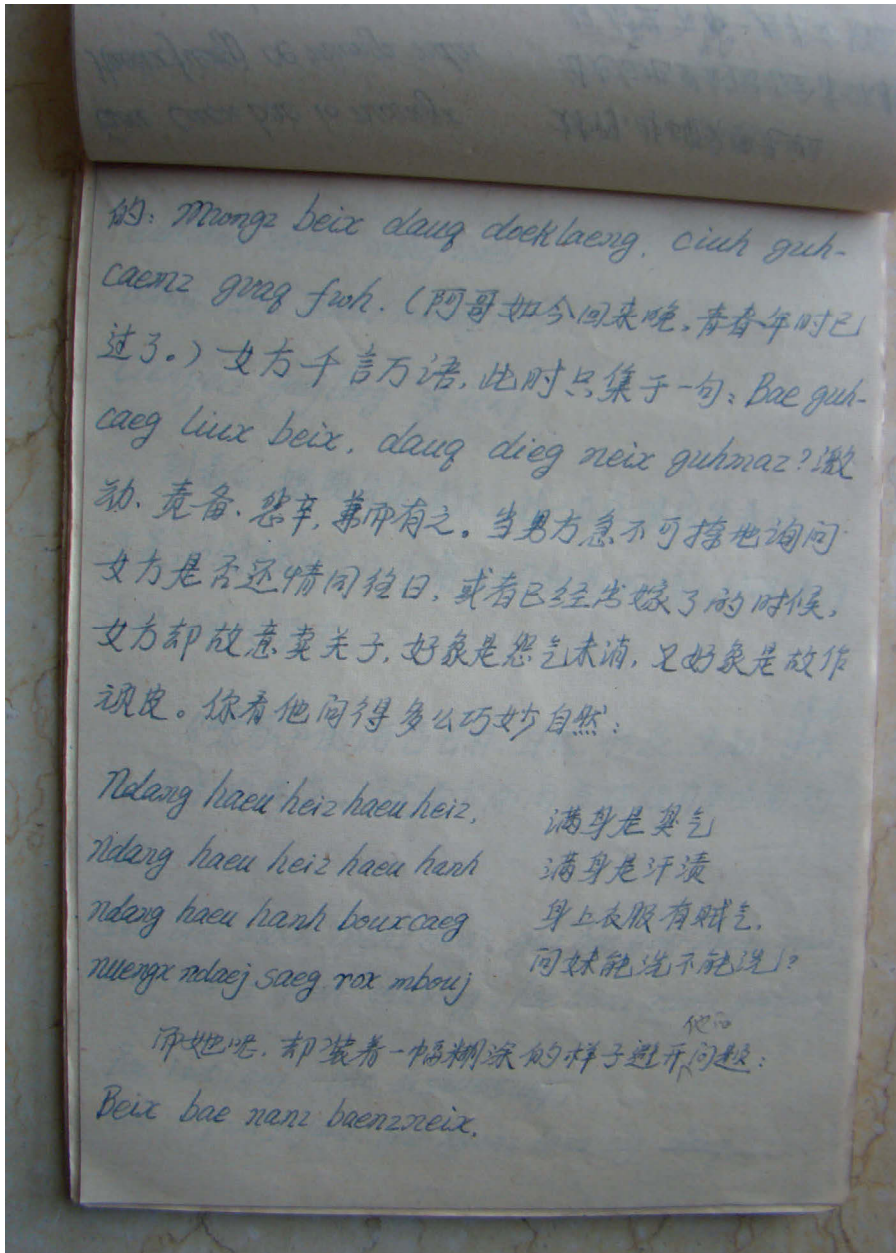 的: Mwongz beix dauq doeklaeng, ciuh guh-
caemz gvaq fwoh. (阿哥如今回来晚,青春年时已
过了。) 女方千言万语,此时只集于一句: Bae guh-
caeg liux beix, dauq dieg neix guhmaz? 激
动、责备、悲辛,兼而有之。当男方急不可捺地询问
女方是否还情同往日,或者已经出嫁了的时候,
女方却故意卖关子,好象是怨气未消,又好象是故作
顽皮。你看他问得多么巧妙自然:
Ndang haeu heiz haeu heiz, 满身是臭气
ndang haeu heiz haeu hanh 满身是汗渍
ndang haeu hanh bouxcaeg 身上衣服有贼气,
nuengx ndaej saeg rox mbouj 问妹能洗不能洗?
而她呢,却装着一幅糊涂的样子避开他的问题:
Beix bae nanz baenzneix,